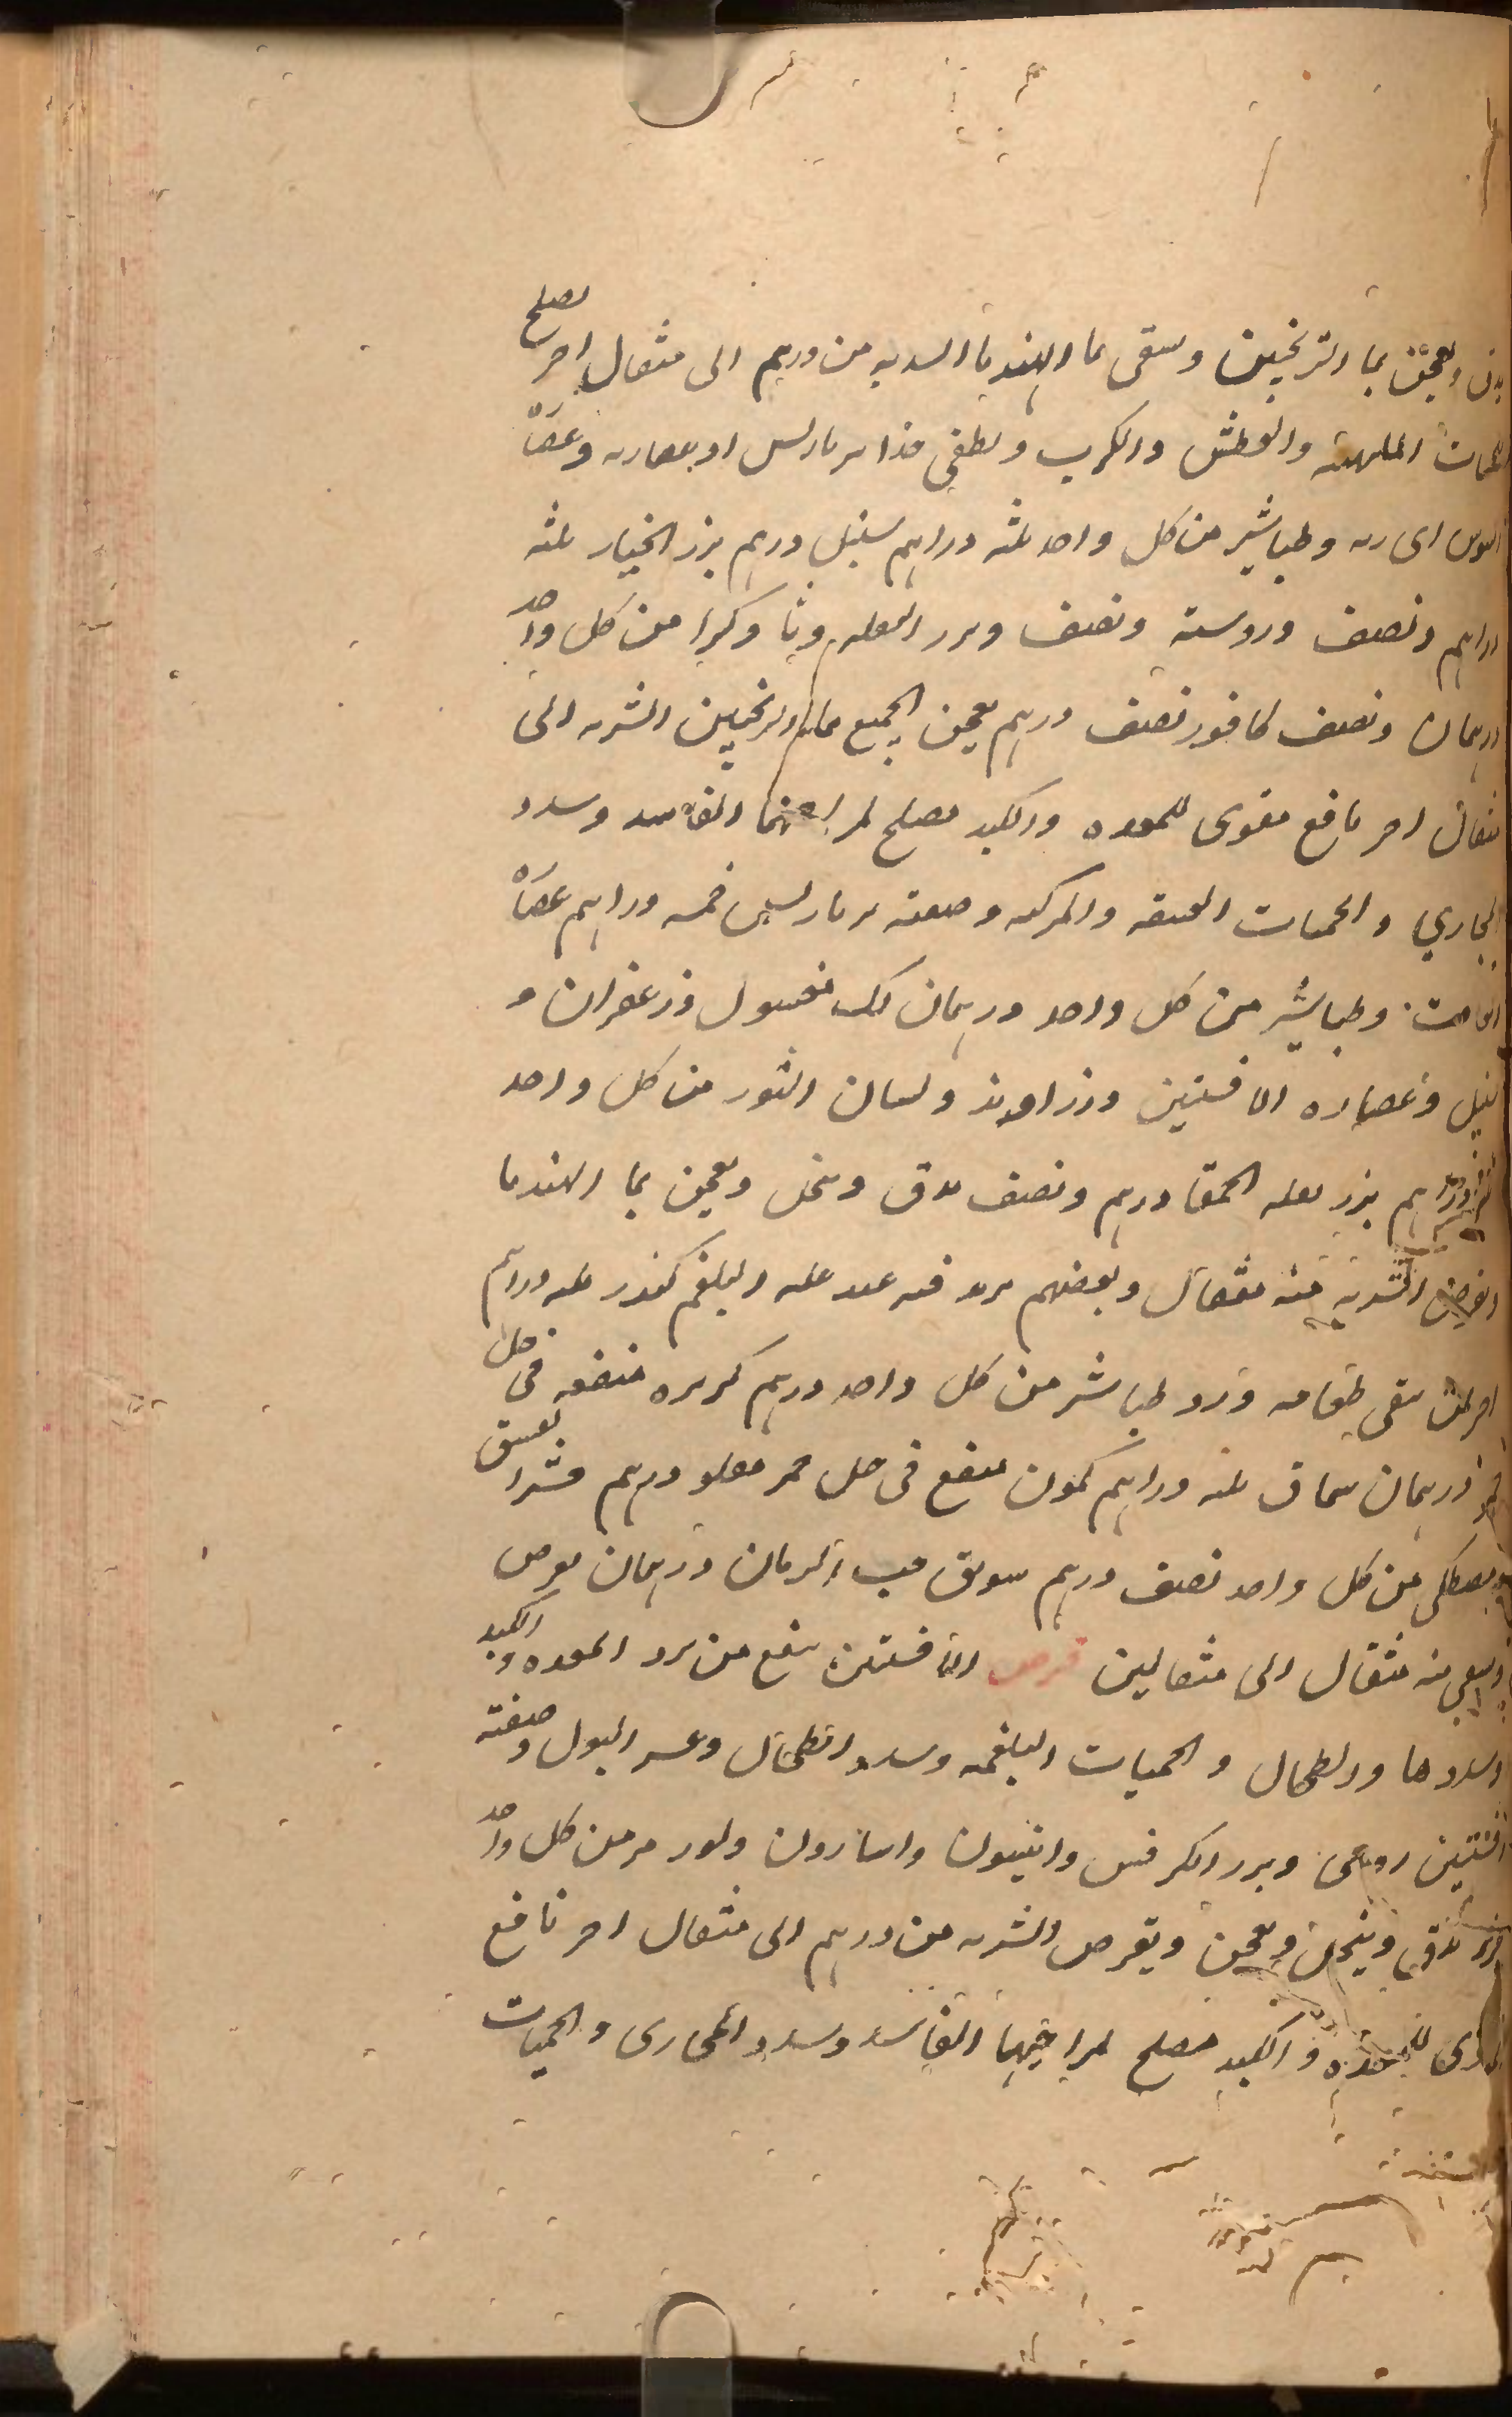 ويعجن بماء الترنجبين ويسقى بماء الهندبا الشربة من درهم الى مثقال اخر يصلح
للحميات الملهبة والعطش والكرب ويطفى امبرباريس او عصارته وعصارة
السوس وطباشير من كل واحد ثلثة دراهم سنبل درهم بزر الخيار ثلثة
دراهم ونصف ورد ستة ونصف وبزر البقلة ونشا وكثيرا من كل واحد
درهمان ونصف كافور نصف درهم يعجن الجميع بماء الترنجبين الشربة الى
مثقال اخر نافع مقوى للمعده والكبد مصلح لمزاجهما الفاسد وسدد
المجاري والحميات العتيقة والمركبة وصفته برباريس خمسة دراهم عصارة
الغافت وطباشير من كل واحد درهمان لك مغسول وزعفران و
سنبل وعصاره الافسنتين وزراوند ولسان الثور من كل واحد
درهم بزر بقلة الحمقا درهم ونصف يدق وينخل ويعجن بما الهندبا
الشربة منه مثقال وبعضهم يزيد فيه عند غلبة البلغم كندر ثلثة دراهم
اخر لمن يتقى طعامه ورد طباشير من كل واحد درهم كزبره منقعة فى خل
خمر درهمان سماق ثلثة دراهم كمون منقع فى خل خمر مقلو درهم قشر الفستق
ومصطكى من كل واحد نصف درهم سويق حب الرمان درهمان يقرص
ويسقى منه مثقال الى مثقالين قرص الافسنتين ينفع من برد المعده والكبد
وسددها والطحال والحميات البلغمية وسدد الطحال وعسر البول وصفته
افسنتين رومى وبزر الكرفس وانيسون واسارون ولوز مر من كل واحد
يدق وينخل ويعجن ويقرص الشربة من درهم الى مثقال اخر نافع
مقوى للمعده والكبد مصلح لمزاجهما الفاسد وسدد المجارى والحميات